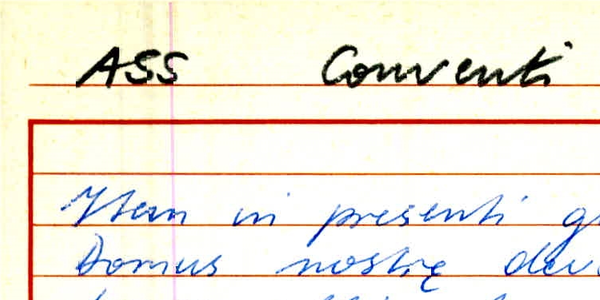 ASS Conventi
Item in presenti
Domus nostrę